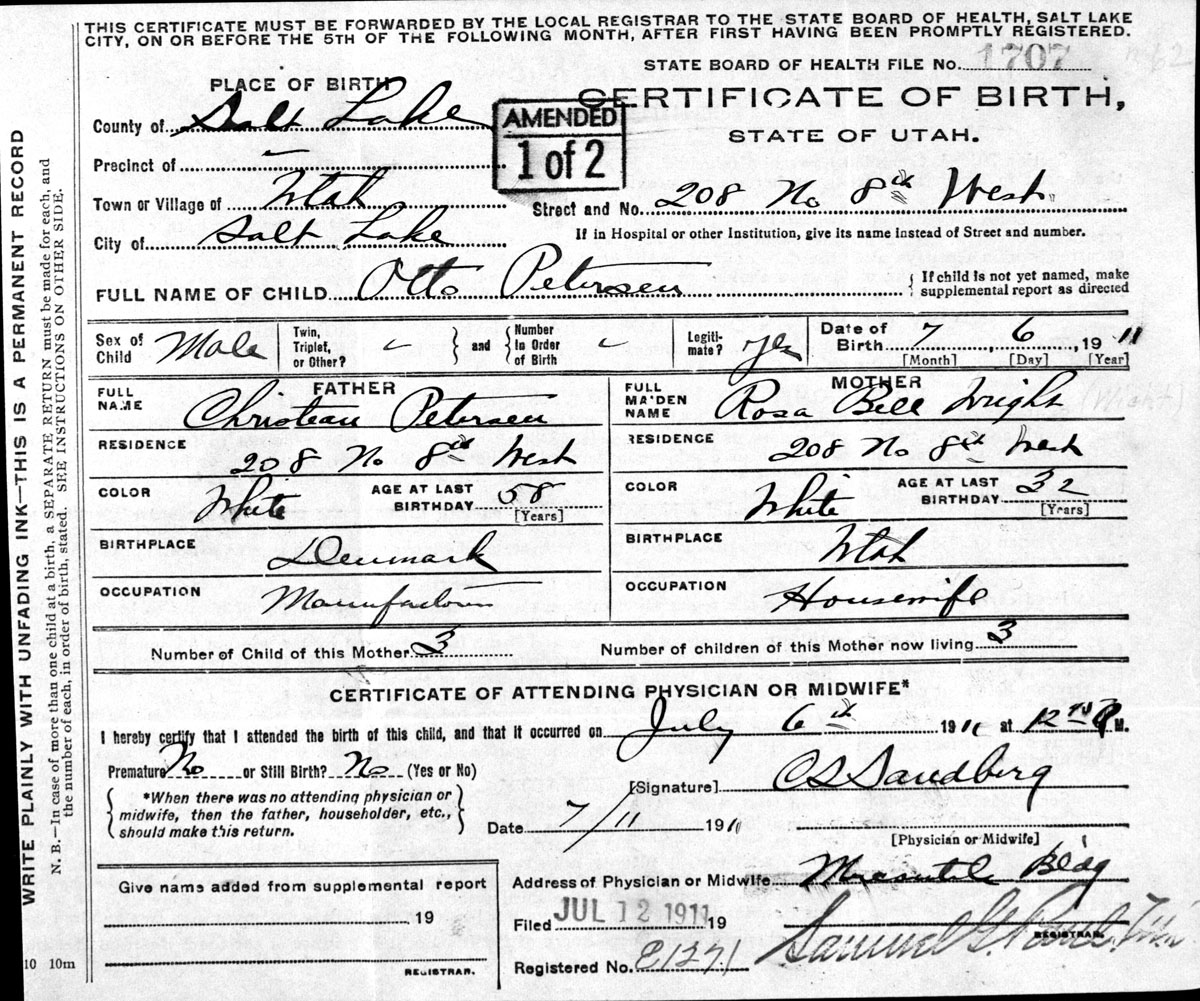 THIS CERTIFICATE MUST BE FORWARDED BY THE LOCAL REGISTRAR TO THE STATE BOARD OF HEALTH, SALT LAKE
CITY, ON OR BEFORE THE 5TH OF THE FOLLOWING MONTH, AFTER FIRST HAVING BEEN PROMPTLY REGISTERED.
STATE BOARD OF HEALTH FILE No. 1707
PLACE OF BIRTH
CERTIFICATE OF BIRTH,
STATE OF UTAH.
AMENDED
1 of 2
County of Salt Lake
Precinct of
Town or Village of Utah
Street and No. 208 No 8th West
City of Salt Lake
If in Hospital or other Institution, give its name instead of Street and number.
FULL NAME OF CHILD Otto Petersen
{ If child is not yet named, make
supplemental report as directed
Sex of Child Male
Twin, Triplet, or Other?
} and {
Number In Order of Birth
Legiti-mate? yes
Date of Birth 7, 6, 1911
[Month] [Day] [Year]
FATHER
FULL NAME Christean Petersen
RESIDENCE
208 No 8th West
COLOR White AGE AT LAST BIRTHDAY 58
[Years]
BIRTHPLACE Denmark
OCCUPATION
MOTHER
FULL MAIDEN NAME Rosa Bell Wright
(Wight)
RESIDENCE
208 No 8th West
COLOR White AGE AT LAST BIRTHDAY 32
[Years]
BIRTHPLACE Utah
OCCUPATION Housewife
Number of Child of this Mother 3
Number of children of this Mother now living 3
CERTIFICATE OF ATTENDING PHYSICIAN OR MIDWIFE*
I hereby certify that I attended the birth of this child, and that it occurred on July 6th 1911 at 12 M.
Premature No or Still Birth? No (Yes or No)
{ *When there was no attending physician or
midwife, then the father, householder, etc.,
should make this return. }
[Signature] CS Sandberg
Date 7/11 1911
[Physician or Midwife]
Address of Physician or Midwife Bldg
Give name added from supplemental report
19
REGISTRAR.
Filed JUL 12 1911 19
Samuel G.
REGISTRAR.
Registered No.
10 10m
WRITE PLAINLY WITH UNFADING INK—THIS IS A PERMANENT RECORD
N. B.—In case of more than one child at a birth, a SEPARATE RETURN must be made for each, and
the number of each, in order of birth, stated. SEE INSTRUCTIONS ON OTHER SIDE.